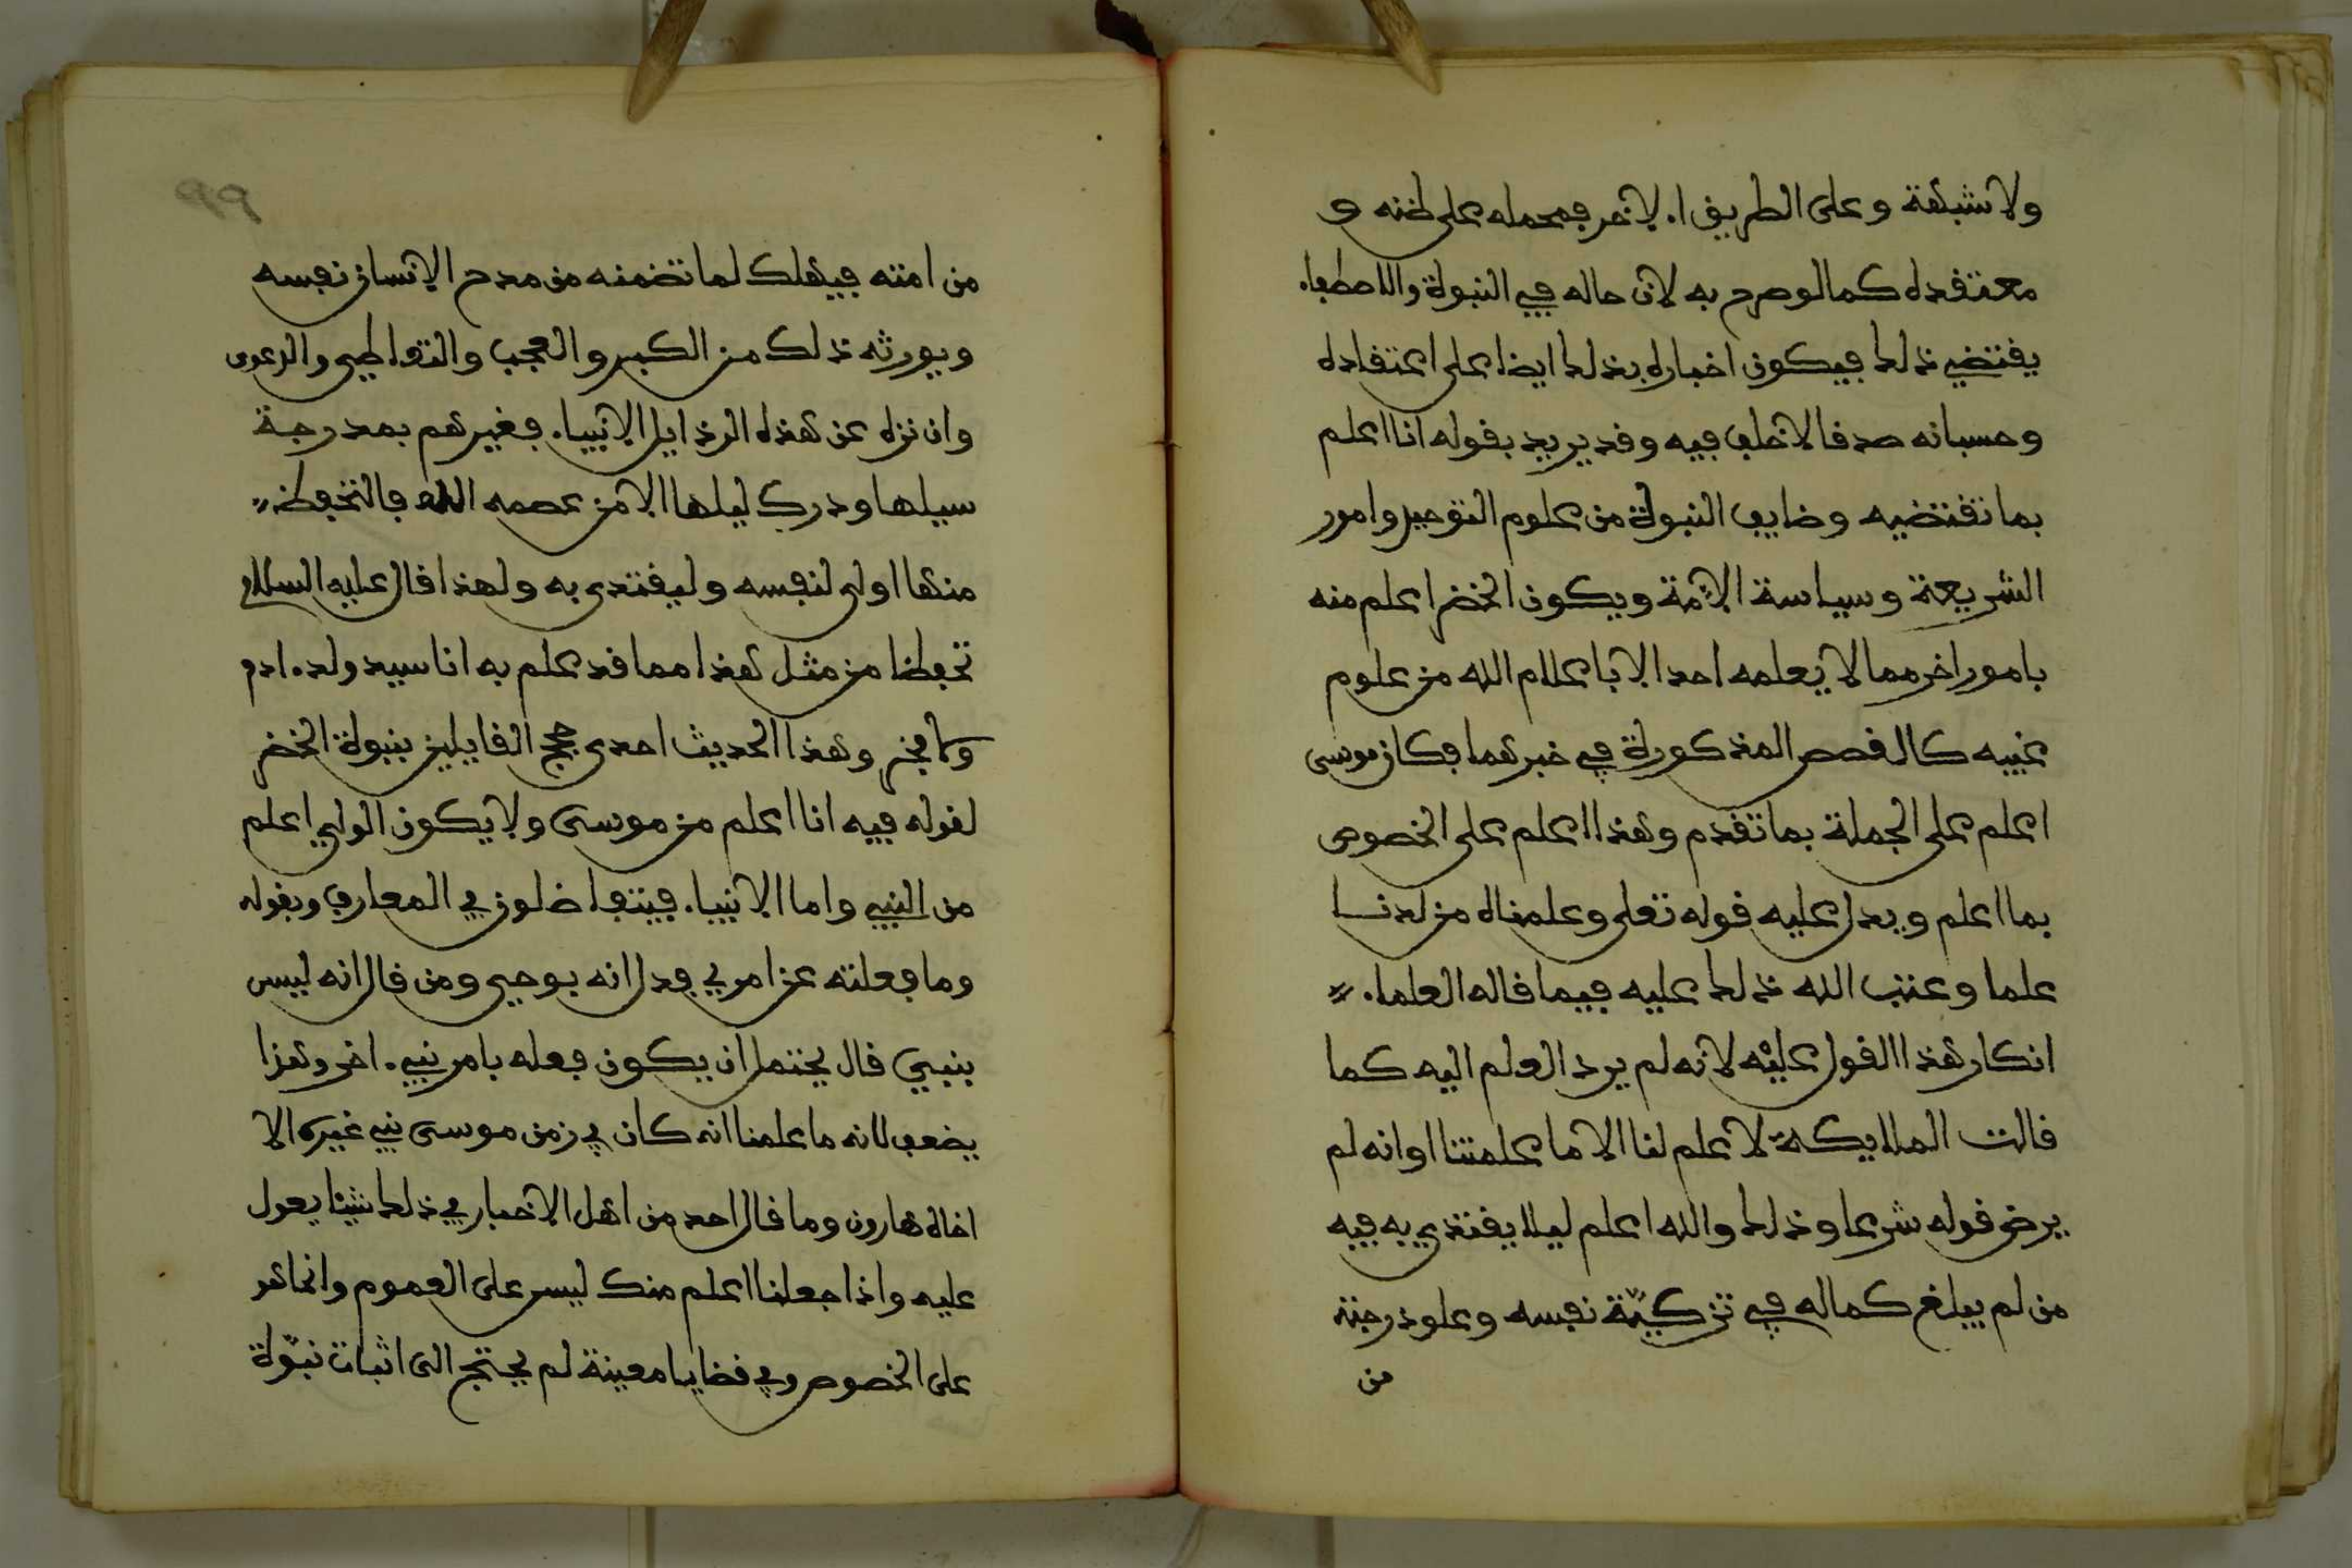 ولا شبهة وعلى الطريق الاخر فمحمله على ظنه و
معتقده كما لو صرح به لان حاله في النبوة والاصطفاء
يقتضي ذلك فيكون اخباره بذلك ايضا على اعتقاده
وحسبانه صدقا لا خلف فيه وقد يريد بقوله انا اعلم
بما تقتضيه وضايف النبوة من علوم التوحيد وامور
الشريعة وسياسة الامة ويكون الخضر اعلم منه
بامور اخر مما لا يعلمه احد الا باعلام الله من علوم
غيبه كالقصص المذكورة في خبرهما فكان موسى
اعلم على الجملة بما تقدم وهذا اعلم على الخصوص
بما اعلم ويدل عليه قوله تعلى وعلمناه من لدنا
علما وعتب الله ذلك عليه فيما قاله العلماء
انكار هذا القول عليه لانه لم يرد العلم اليه كما
قالت الملايكة لا علم لنا الا ما علمتنا او انه لم
يرض قوله شرعا وذلك والله اعلم ليلا يقتدي به فيه
من لم يبلغ كماله في تزكية نفسه وعلو درجته
من
99
من امته فيهلك لما تضمنه من مدح الانسان نفسه
ويورثه ذلك من الكبر والعجب والتعاطي والدعوى
وان نزه عن هذه الرذايل الانبياء فغيرهم بمدرجة
سيلها ودرك ليلها الا من عصمه الله فالتحفظ
منها اولى لنفسه وليقتدى به ولهذا قال عليه السلام
تحفظا من مثل هذا مما قد علم به انا سيد ولد ادم
ولا فخر وهذا الحديث احدى حجج القايلين بنبوة الخضر
لقوله فيه انا اعلم من موسى ولا يكون الولي اعلم
من النبي واما الانبياء فيتفاضلون في المعارف وبقوله
وما فعلته عن امري فدل انه بوحي ومن قال انه ليس
بنبي قال يحتمل ان يكون فعله بامر نبي اخر وهذا
يضعف لانه ما علمنا انه كان في زمن موسى نبي غيره الا
اخاه هارون وما قال احد من اهل الاخبار في ذلك شيئا يعول
عليه واذا جعلنا اعلم منك ليس على العموم وانما هو
على الخصوص وفي قضايا معينة لم يحتج الى اثبات نبوة